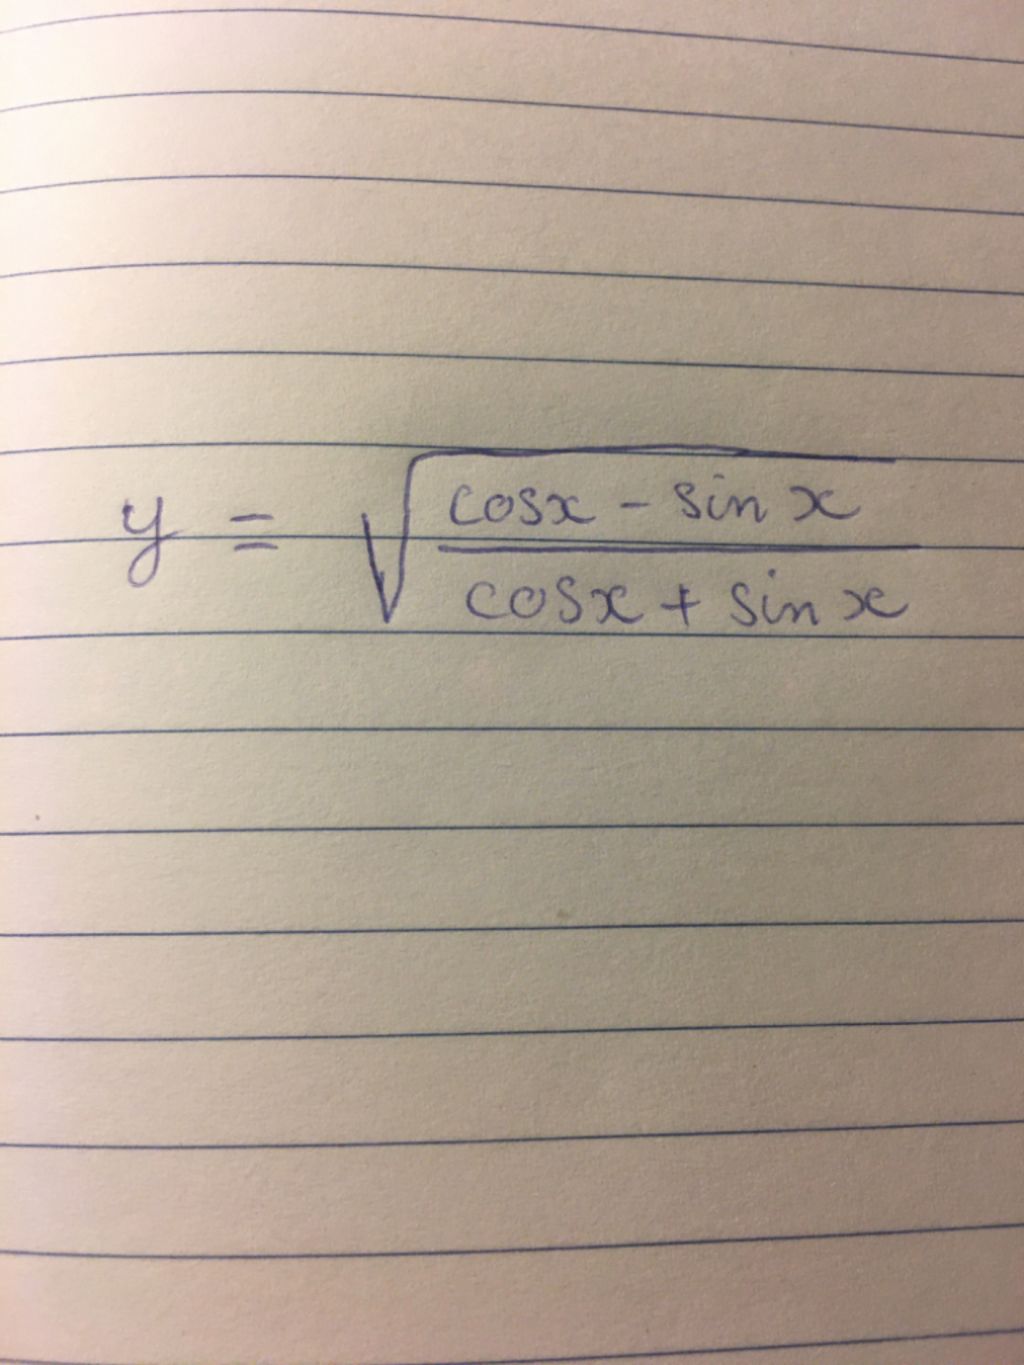 y = √((cosx - sin x)/(cosx + sin x))